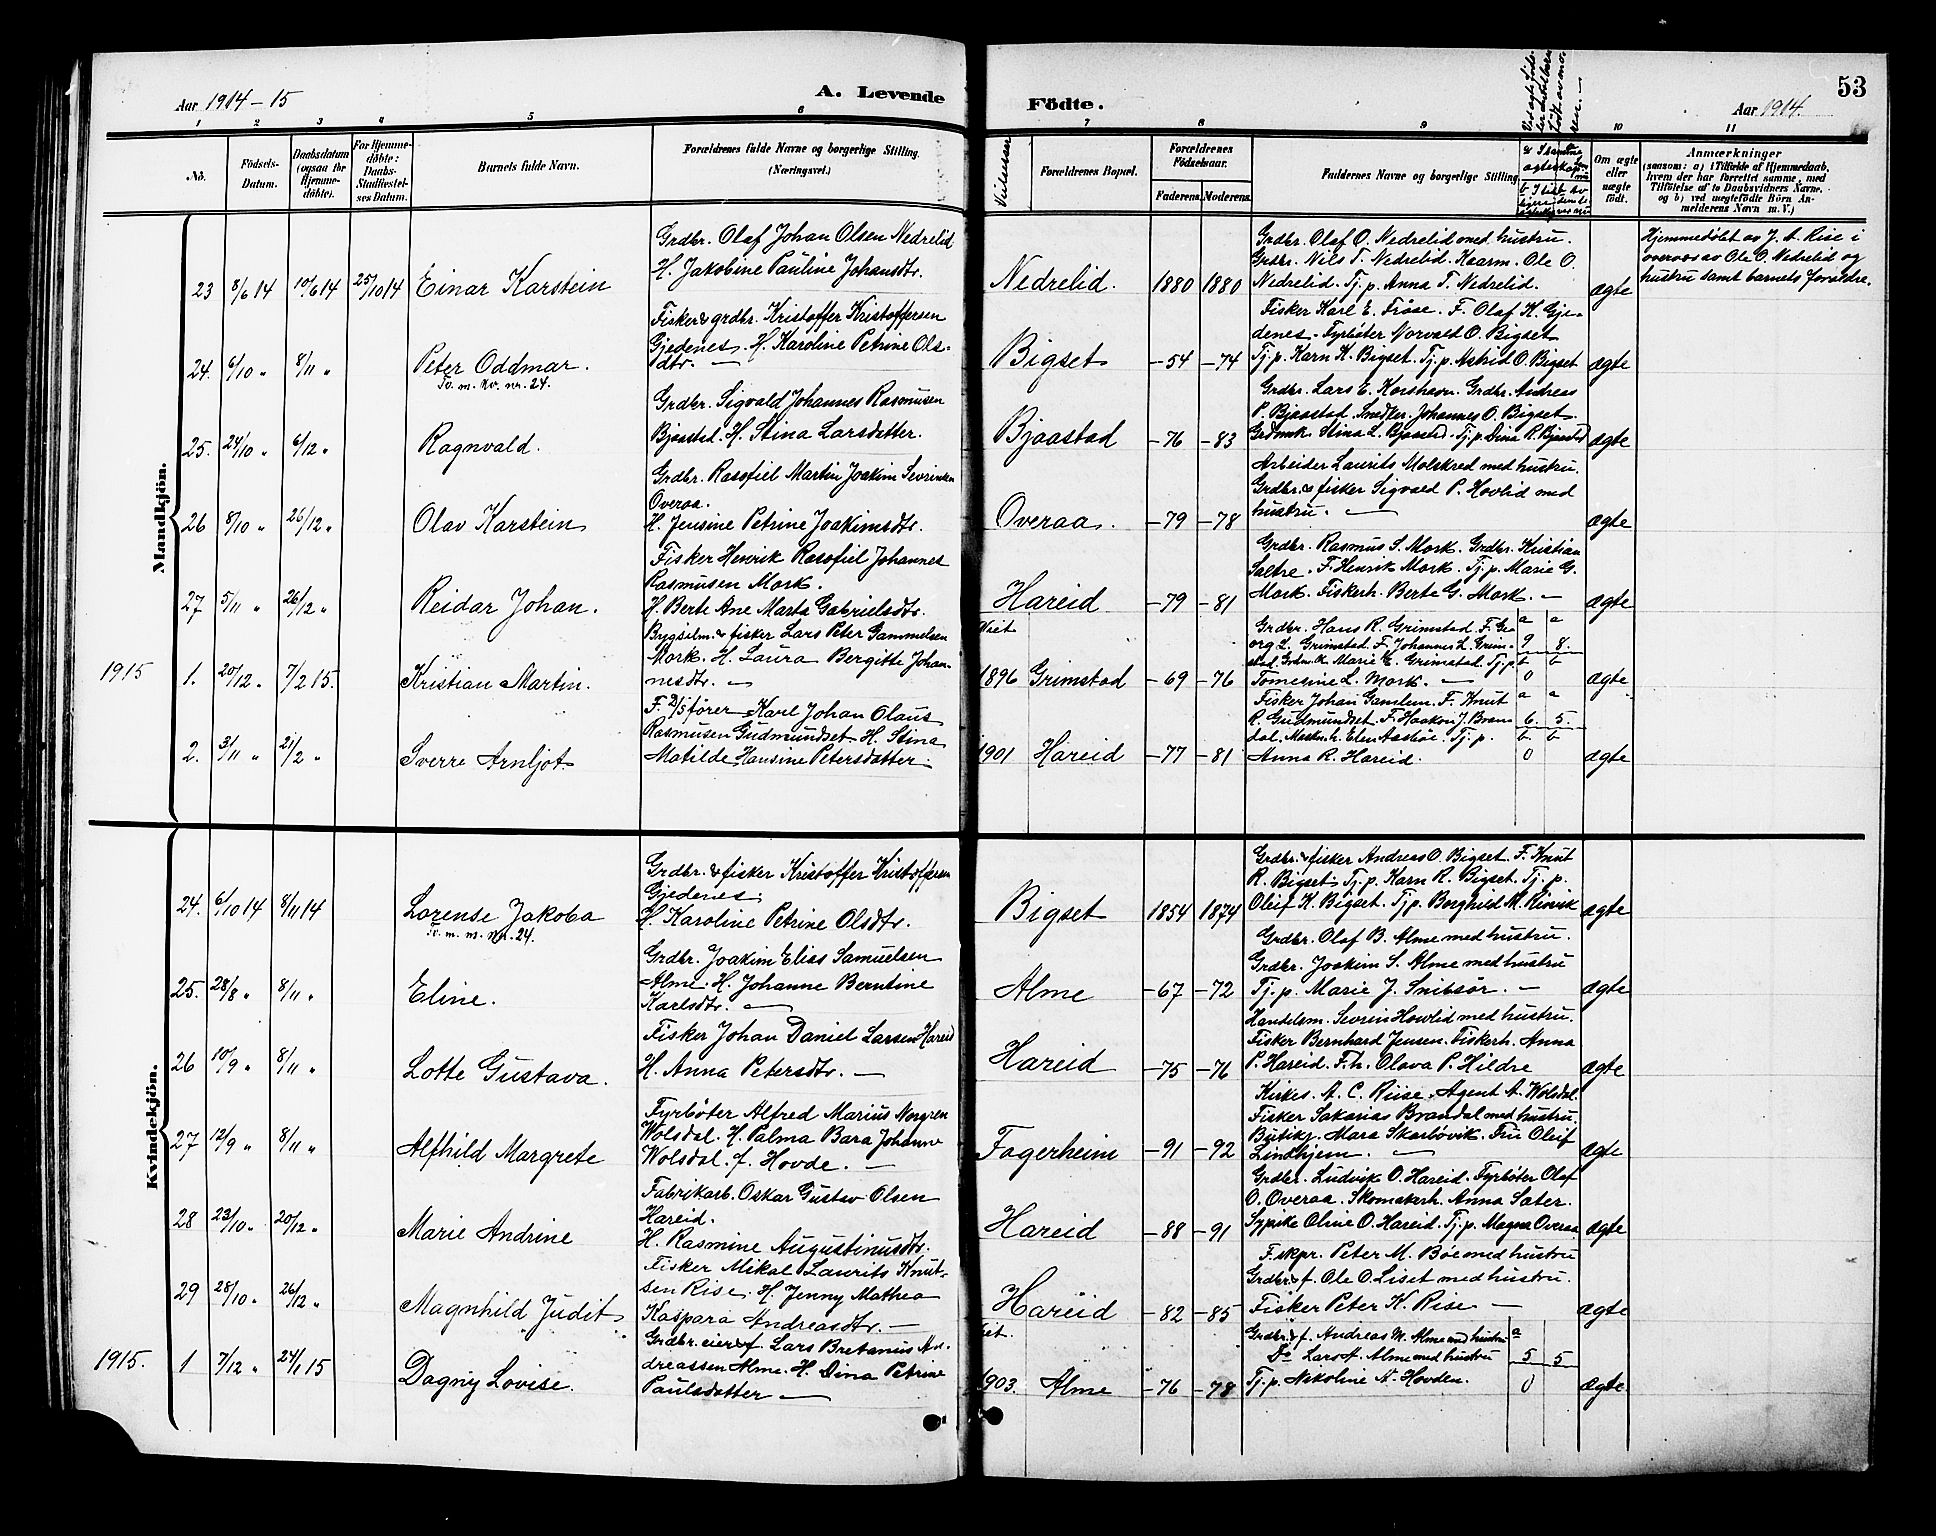 Aar 1914-15
A. Levende
1 2 3 4 5 6
No.
Födsels-Datum.
Daabsdatum (ogsaa for Hjemme-döbte).
For Hjemme-döbte: Daabs-Stadfæstel-ses Datum.
Barnets fulde Navn.
Forældrenes fulde Navne og borgerlige Stilling.
(Næringsvei.)
Mandkjön.
23 8/6 14 10/6 14 25/10 14 Einar Karstein
Grdbr. Olaf Johan Olsen Nedrelid
H. Jakobine Pauline Johansdtr.
24. 6/10 " 8/11 " Peter Oddmar.
Tv. m. Kv. nr. 24.
Fisker & grdbr. Kristoffer Kristoffersen
Gjedenes. H. Karoline Petrine Ols-
dtr. —
25. 24/10 " 6/12 " Ragnvald.
Grdbr. Sigvald Johannes Rasmusen
Bjaastad. H. Stina Larsdatter.
26 8/10 " 26/12 " Olav Karstein
Grdbr. Rasofiel Martin Joakim Sevrinsen
Overaa.
H. Jensine Petrine Joakimsdtr.
27 5/11 " 26/12 " Reidar Johan.
Fisker Henrik Rasofiel Johannes
Rasmusen Mork.
H. Berte Ane Marta Gabrielsdtr.
1915 1. 20/12 " 7/2 15. Kristian Martin.
Bygselm. & fisker Lars Peter Gammelsen
Mork. H. Laura Bergitte Johan-
nesdtr. —
2. 3/11 " 21/2 " Sverre Arnljot.
F. D/S fører Karl Johan Olaus
Rasmusen Gudmundset H. Stina
Matilde Hansine Petersdatter.
Kvindekjön.
24. 6/10 14 8/11 14 Lorense Jakoba
Tv. m. m. nr. 24.
Grdbr. & fisker Kristoffer Kristoffersen
Gjedenes.
H. Karoline Petrine Olsdtr.
25. 28/8 " 8/11 " Eline.
Grdbr. Joakim Elias Samuelsen
Alme. H. Johanne Berntine
Karlsdtr. —
26 10/9 " 8/11 " Lotte Gustava.
Fisker Johan Daniel Larsen Hareid
H. Anna Petersdtr. —
27 12/9 " 8/11 " Alfhild Margrete
Fyrbøter Alfred Marius Norgren
Wolsdal. H. Palma Bara Johanne
Wolsdal. f. Hovde. —
28 23/10 " 20/12 " Marie Andrine
Fabrikarb. Oskar Gustav Olsen
Hareid.
H. Rasmine Augustinusdtr.
29 28/10 " 26/12 " Magnhild Judit
Fisker Mikal Laurits Knut-
sen Rise. H. Jenny Mathea
Kaspara Andreasdtr. —
1915. 1 7/12 " 24/1 15 Dagny Lovise.
Grdbr. eier & f. Lars Bretanus An-
dreassen Alme. H. Dina Petrine
Paulsdatter —
Födte.
Aar 1914.
53
7 8 9 10 11
Vielsesaar
Forældrenes Bopæl.
Forældrenes Födselsaar.
Faderens. Moderens.
Faddernes Navne og borgerlige Stilling.
Om ægte eller uægte födt.
Anmærkninger
(saasom: a) i Tilfælde af Hjemmedaab, hvem der har forrettet samme, med Tilföielse af to Daabsvidners Navne, og b) ved uægtefödte Börn Anmelderens Navn m. V.)
Nedrelid. 1880 1880
Grdbr. Olaf O. Nedrelid med hustru.
Grdbr. Nils T. Nedrelid. Kaarm. Ole O.
Nedrelid. Tj. p. Anna T. Nedrelid.
ægte
Hjemmedøbt av J. A. Rise i
overvær av Ole O. Nedrelid og
hustru samt barnets forældre.
Bigset -54 -74
Fisker Karl E. Frøse. F. Olaf K. Gje-
denes. Fyrbøter Norvald O. Bigset
Tj. p. Karn K. Bigset. Tj. p. Astrid O. Bigset
ægte
Bjaastad -76 -83
Grdbr. Lars E. Korshavn. Grdbr. Andreas
P. Bjaastad. Snedker Johannes O. Bigset.
Grdmk. Stina L. Bjaastad. Tj. p. Dina R. Bjaastad
ægte
Overaa. -79 -78
Arbeider Laurits Molskred med hustru.
Grdbr. & fisker Sigvald P. Hovlid med
hustru. —
ægte
Hareid. -79 -81
Grdbr. Rasmus S. Mork. Grdbr. Kristian
Saltre. F. Henrik Mork. Tj. p. Marie G.
Mork. Fiskerh. Berte G. Mork. —
ægte
Viet
1896 Grimstad -69 -76
Grdbr. Hans R. Grimstad. F. Ge-
org L. Grimstad. F. Johannes L. Grim-
stad. Grdmk. Marie E. Grimstad. Tj. p.
Tomesine L. Mork. —
a a
9 8.
b b
0
ægte
1901 Hareid -77 -81
Fisker Johan Gamlem. F. Knut
R. Gudmundset. F. Haakon J. Bran-
dal. Maskn. h. Elen Aasbøe. Tj. p.
Anna R. Hareid.
a a
6. 5.
b b
0
ægte
Bigset 1854 1874
Grdbr. & fisker Andreas O. Bigset. F. Knut
R. Bigset. Tj. p. Karn R. Bigset. Tj. p.
Oleif K. Bigset. Tj. p. Borghild M. Kinvik
ægte
Alme -67 -72
Grdbr. Olaf B. Alme med hustru.
Grdbr. Joakim S. Alme med hustru
Tj. p. Marie J. Snibsør. —
ægte
Hareid -75 -76
Handelsm. Sevrin Hovlid med hustru.
Fisker Bernhard Jensen. Fiskerh. Anna
P. Hareid. F. h. Olava P. Hildre
ægte
Fagerheim -91 -92
Kirkes. A. C. Riise. Agent A. Wolsdal.
Fisker Sakarias Brandal med hustru.
Butikj. Mara Skarbøvik. Fru Oleif
Lindhjem. —
ægte
Hareid -88 -91
Grdbr. Ludvik O. Hareid. Fyrbøter Olaf
O. Overaa. Skomakerh. Anna Sater.
Sypike Oline O. Hareid. Tj. p. Magna Overaa
ægte
Hareid -82 -85
F. skpr. Peter M. Bøe med hustru
Grdbr. & f. Ole O. Liset med hustru.
Fisker Peter K. Rise —
ægte
Viet.
1903. Alme -76 -78
Grdbr. & f. Andreas M. Alme med hustru
Do Lars A. Alme med hustru
Tj. p. Nikoline A. Hovden.
a
5 5
0
ægte